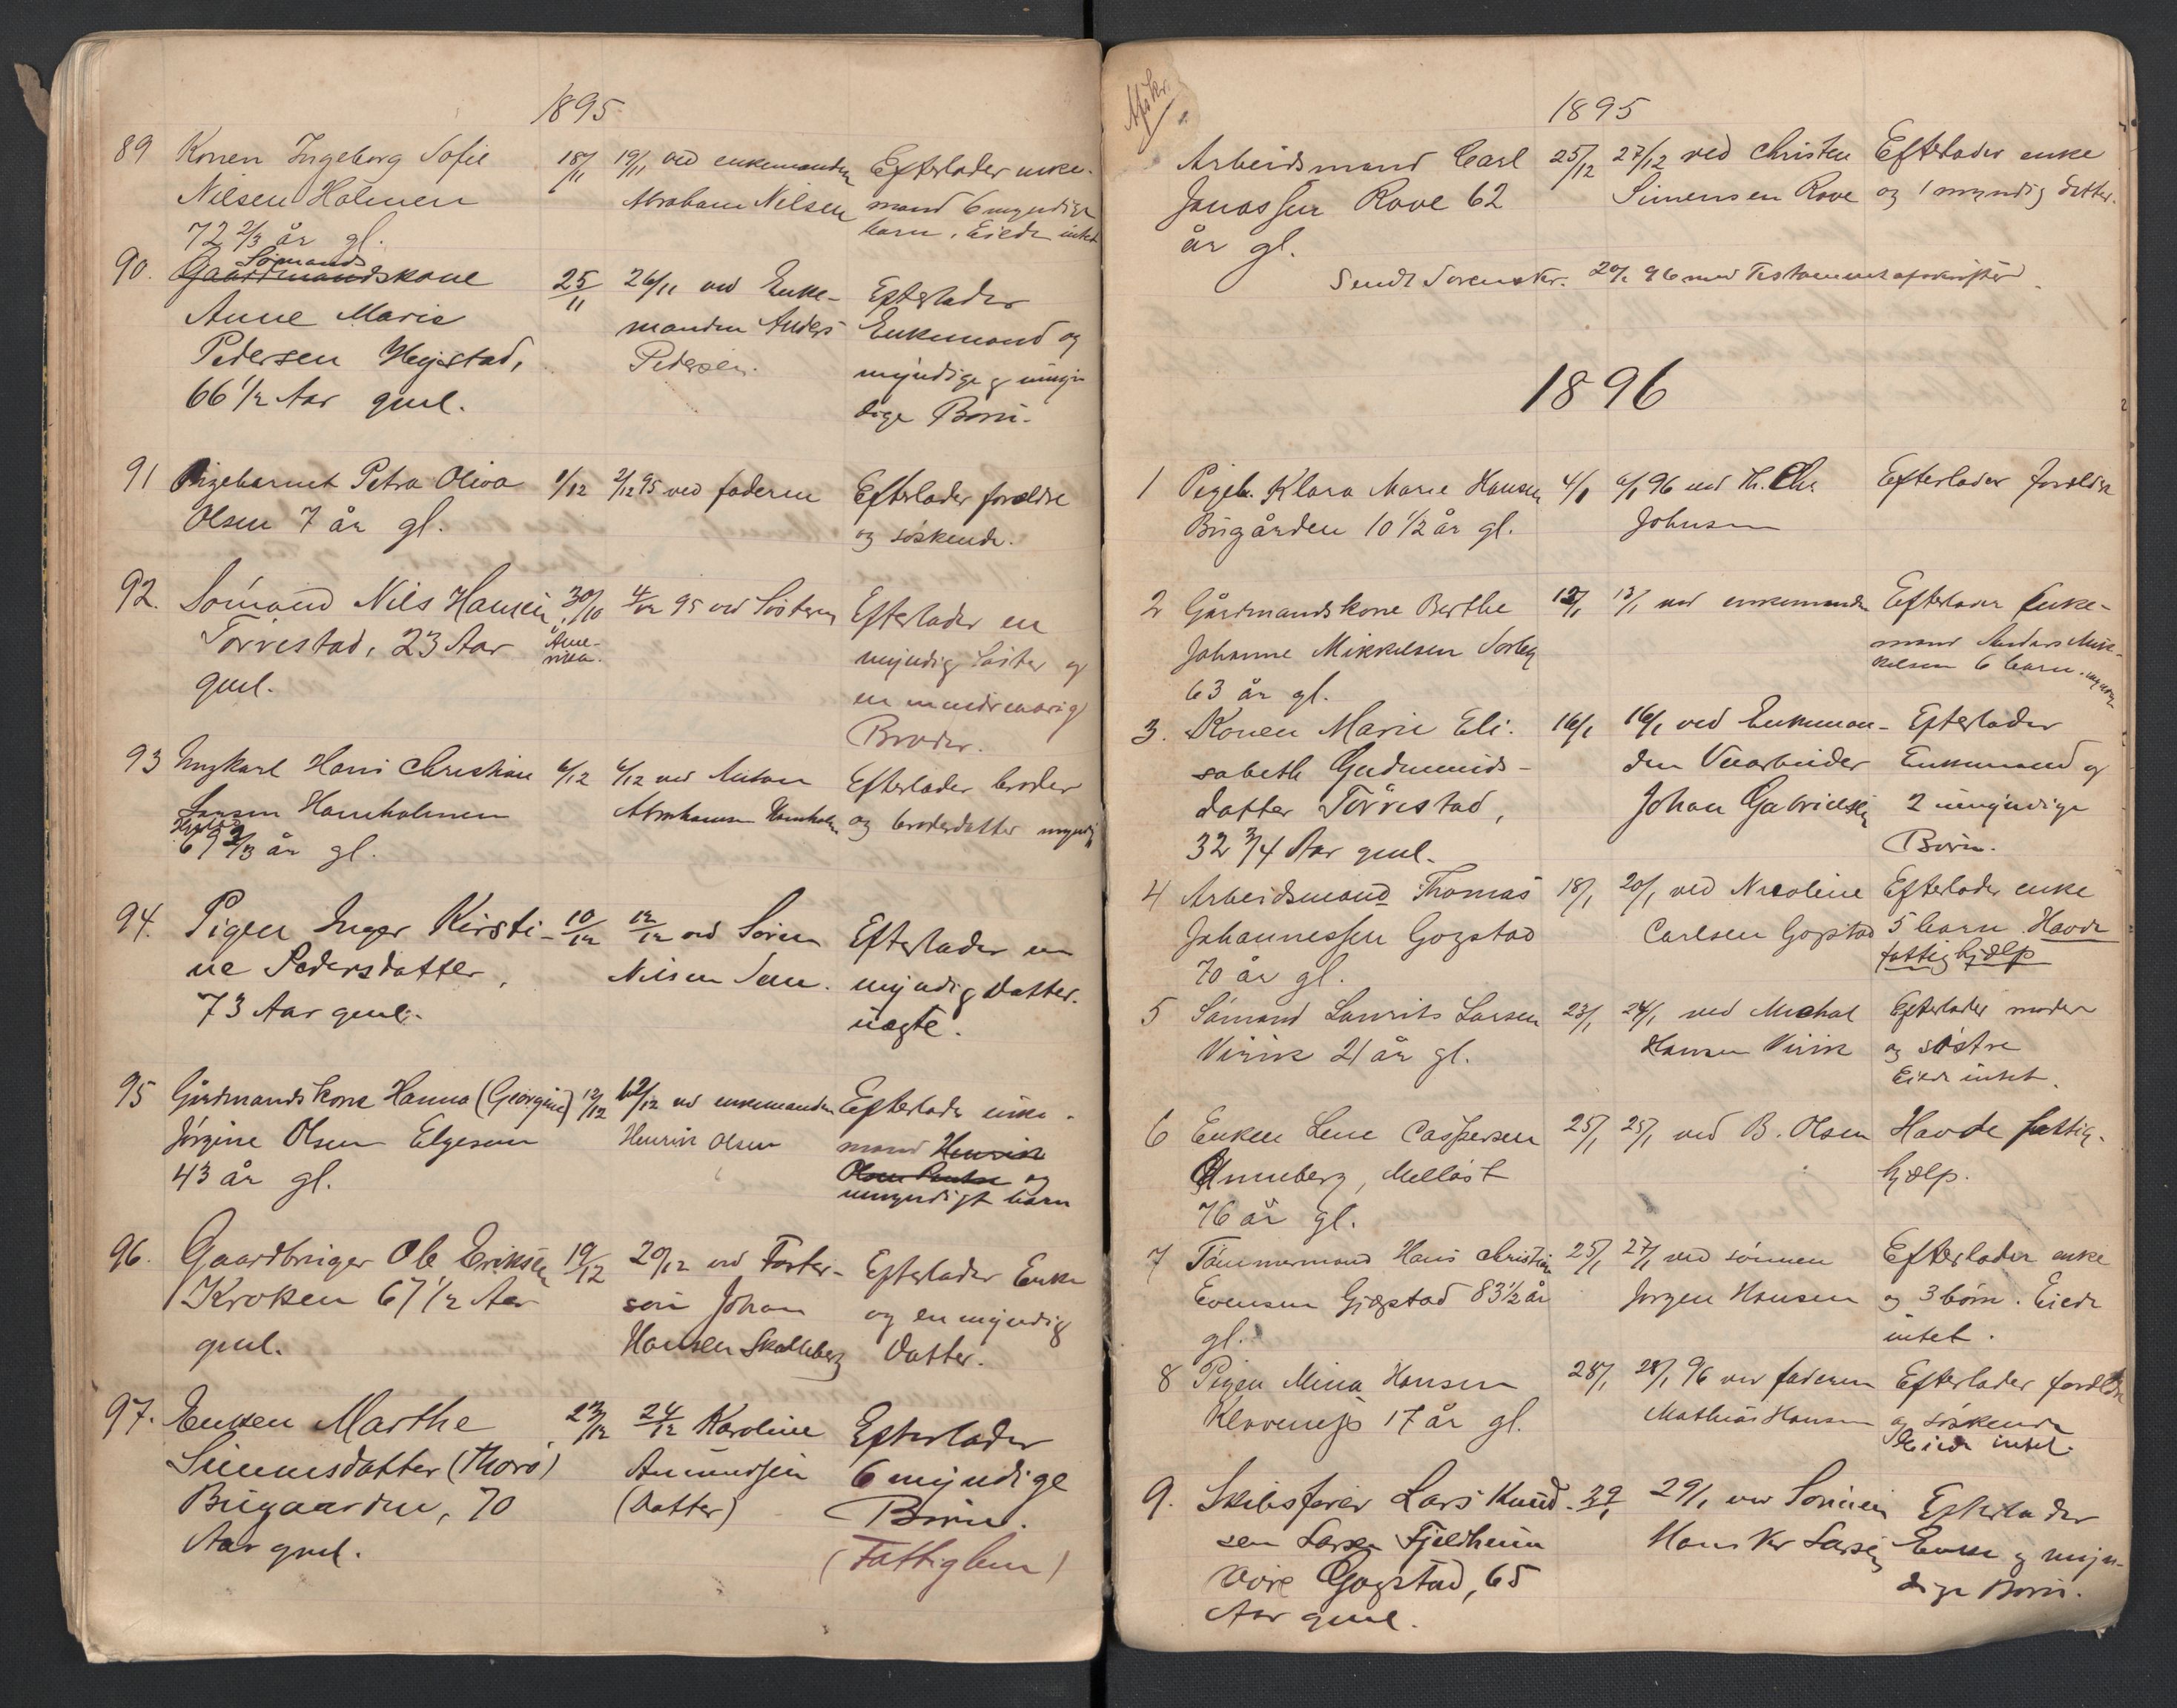 1895
89 Konen Ingeborg Sofie 18/11 19/11 ved enkemanden Efterlader enke-
Nilsen Holmen Abraham Nilsen mand 6 myndige
72 2/3 år gl. barn. Eiede intet
Sømands
90. Gaardmandskone 25/11 26/11 ved Enke- Efterlader
Anne Marie manden Anders Enkemand og
Pedersen Hegstad, Pedersen. myndige og umyn
66 1/2 Aar gml. dige Børn.
91 Pigebarnet Petra Oliva 1/12 2/12 95 ved faderen Efterlader forældre
Olsen 7 år gl. og søskende.
92. Sømand Nils Hansen 30/10 4/12 95 ved Søsteren Efterlader en
Törrestad, 23 Aar i Ame- myndig Søster og
gml. rika. en mindreaarig
Broder.
93 Ungkarl Hans Christian 4/12 6/12 ved Anton Efterlader broder
Larsen Havnholmen Abrahamsen Havnholm og broderdatter myndig
69 2/3 år gl.
94. Pigen Inger Kirsti- 10/12 12/12 ved Søren Efterlader en
ne Pedersdatter, Nilsen Sem. myndig Datter.
73 Aar gml. uægte.
95 Gårdmandskone Hanna (Georgine) 12/12 12/12 ved enkemanden Efterlader enke-
Jörgine Olsen Elgesem Henrik Olsen mand Henrik
43 år gl. Olsen og
umyndigt barn
96. Gaardbruger Ole Eriksen 19/12 20/12 ved Foster- Efterlader Enke
Kroken 67 1/2 Aar søn Johan og en myndig
gml. Hansen Skalleberg Datter.
97. Enken Marthe 23/12 24/12 Karoline Efterlader
Simensdatter (Thorø) Amundsen 6 myndige
Bugaarden, 70 (Datter) Børn.
Aar gml. (Fattiglem)
Afskr.
1895
Arbeidsmand Carl 25/12 27/12 ved Christen Efterlader enke
Jonassen Rove 62 Simensen Rove og 1 myndig datter.
år gl.
Sendt Sorenskr. 20/1 96 med Testamentafskrifter.
1896
1 Pigeb. Klara Marie Hansen 4/1 6/1 96 ved H. Chr. Efterlader forældre
Bugården 10 1/2 år gl. Johnsen
2 Gårdmandskone Berthe 12/1 13/1 ved enkemanden Efterlader Enke-
Johanne Mikkelsen Sørby mand Anders Mik-
63 år gl. kelsen 6 barn.
3. Konen Marie Eli- 16/1 16/1 ved Enkeman- Efterlader
sabeth Gudmunds- den Veiarbeider Enkemand og
datter Törrestad, Johan Gabrielsen 2 umyndige
32 3/4 Aar gml. Børn.
4 Arbeidsmand Thomas 18/1 20/1 ved Nicoline Efterlader enke
Johannessen Gogstad Carlsen Gogstad 5 barn. Havde
70 år gl. fattighjælp
5 Sömand Laurits Larsen 23/1 24/1 ved Michal Efterlader moder
Virik 21 år gl. Hansen Virik og søstre
Eiede intet.
6 Enken Lene Caspersen 25/1 25/1 ved B. Olsen Havde fattig-
Unneberg, Melløst hjælp.
76 år gl.
7 Tømmermand Hans Christian 25/1 27/1 ved sønnen Efterlader enke
Evensen Gjogstad 83 1/2 år Jørgen Hansen og 3 børn. Eiede
gl. intet.
8 Pigen Mina Hansen 28/1 28/1 96 ved faderen Efterlader forældre
Klavenes 17 år gl. Mathias Hansen og søskende
Eiede intet.
9. Skibsfører Lars Knud- 29/1 29/1 ved Sønnen Efterlader
sen Larsen Fjeldheim Hans Kr Larsen Enke og myn-
Gogstad, 65 dige Børn.
Aar gml.